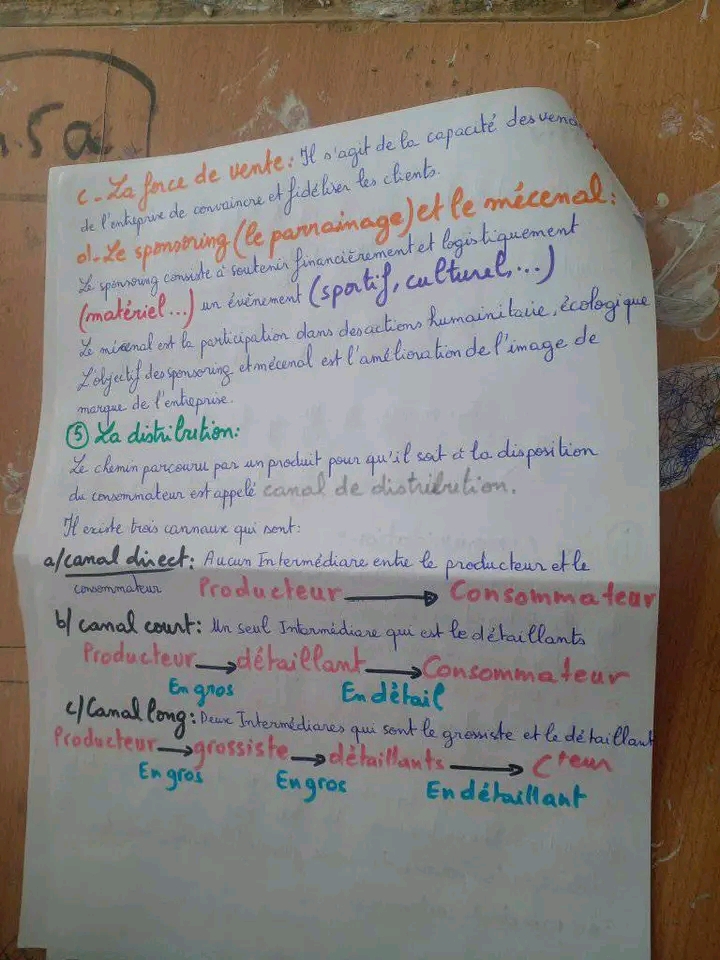 .5a
c - La force de vente: Il s'agit de la capacité des vend
de l'entreprise de convaincre et fidéliser les clients.
d)- Le sponsoring (le parrainage) et le mécenal:
Le sponsoring consiste à soutenir financièrement et logistiquement
(matériel...) un événement (sportif, culturel,...)
Le mécenal est la participation dans des actions humainitaire, écologique
L'objectif des sponsoring et mécenal est l'amélioration de l'image de
marque de l'entreprise.
⑤ La distribution:
Le chemin parcouru par un produit pour qu'il soit à la disposition
du consommateur est appelé canal de distribution.
Il existe trois cannaux qui sont:
a/canal direct: Aucun Intermédiare entre le producteur et le
consommateur Producteur → Consommateur
b/ canal court: Un seul Intermédiare qui est le détaillants
Producteur → détaillant → Consommateur
En gros En détail
c/Canal long: Deux Intermédiares qui sont le grossiste et le détaillant
Producteur → grossiste → détaillants → C^teur
En gros En gros En détaillant